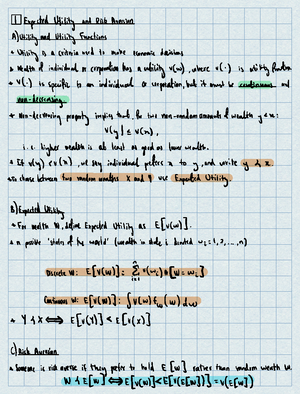 1 Expected Utility and Risk Aversion
A) Utility and Utility Functions
• Utility is a criteria used to make economic decisions
• Wealth of individual or corporation has a utility v(w), where v(·) is utility function
• v(·) is specific to an individual or corporation, but it must be continuous and
non-decreasing.
• Non-decreasing property implies that for two non-random amounts of wealth y < x:
v(y) ≤ v(x),
i.e. higher wealth is at least as good as lower wealth.
• If v(y) < v(x), we say individual prefers x to y, and write y ≺ x.
• To choose between two random wealths X and Y use Expected Utility.
B) Expected Utility
• For wealth W, define Expected Utility as E[v(W)].
• n possible 'states of the world' (wealth in state is denoted wᵢ, i=1,2,...,n)
Discrete W: E[v(W)] = Σⁿᵢ₌₁ v(wᵢ) P[W=wᵢ]
Continuous W: E[v(W)] = ∫ v(w) f_W(w) dw
• Y ≺ X ⟺ E[v(Y)] < E[v(X)]
C) Risk Aversion
• Someone is risk averse if they prefer to hold E[W] rather than random wealth W.
W ≺ E[W] ⟺ E[v(W)] < E[v(E[W])] = v(E[W])